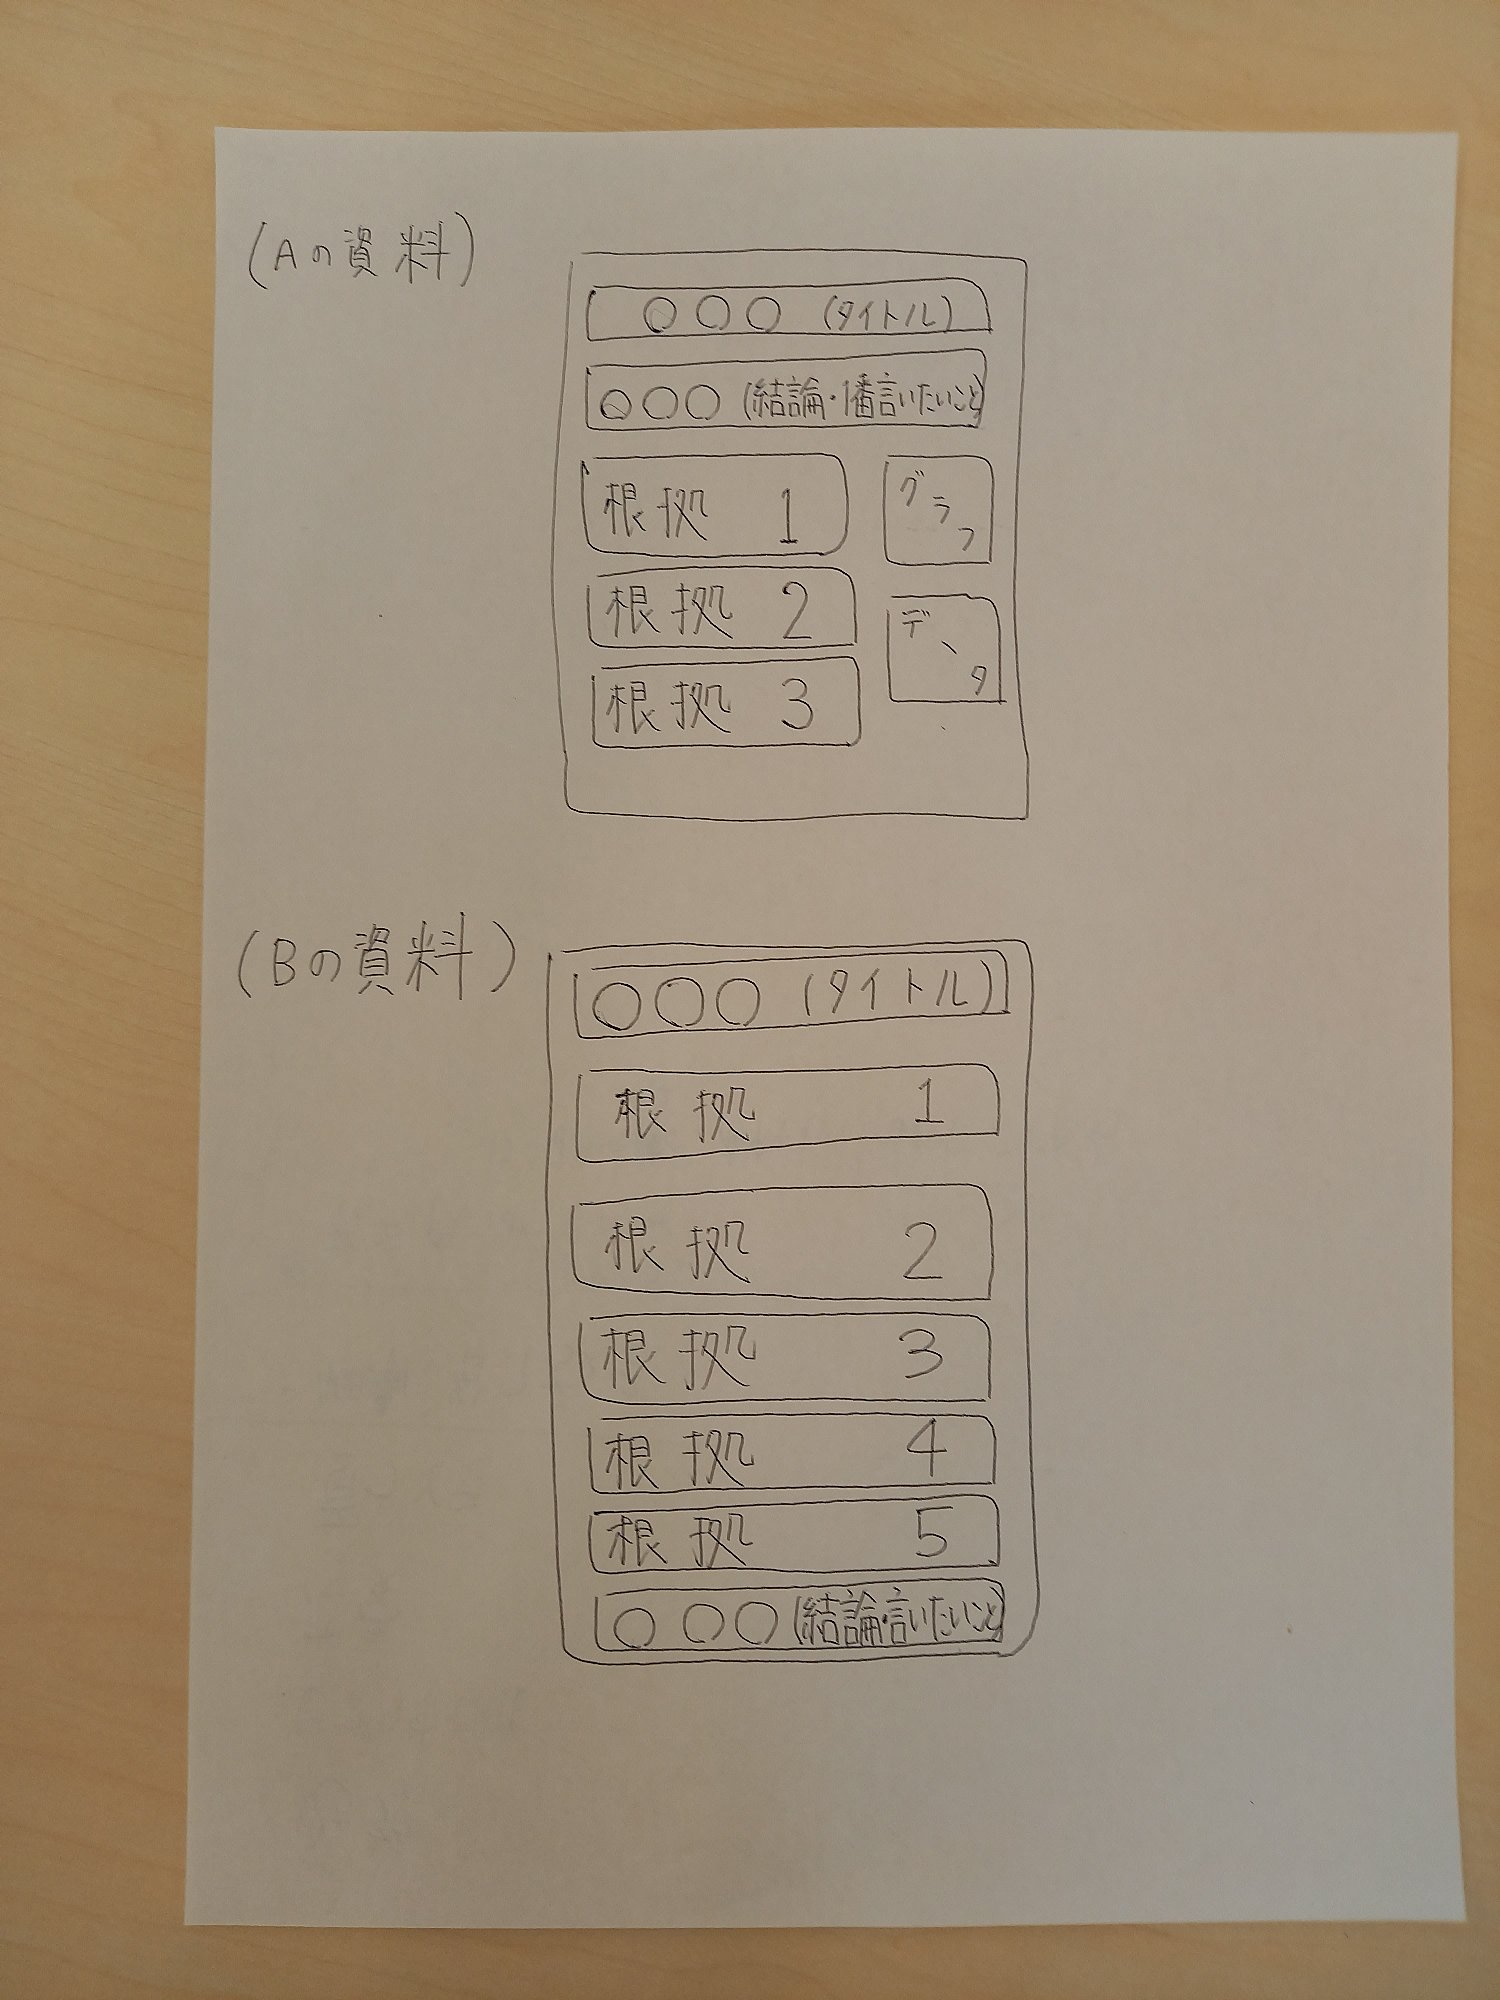 (Aの資料)
○○○ (タイトル)
○○○ (結論・1番言いたいこと)
根拠 1
グラフ
根拠 2
データ
根拠 3
(Bの資料)
○○○ (タイトル)
根拠 1
根拠 2
根拠 3
根拠 4
根拠 5
○○○ (結論・言いたいこと)